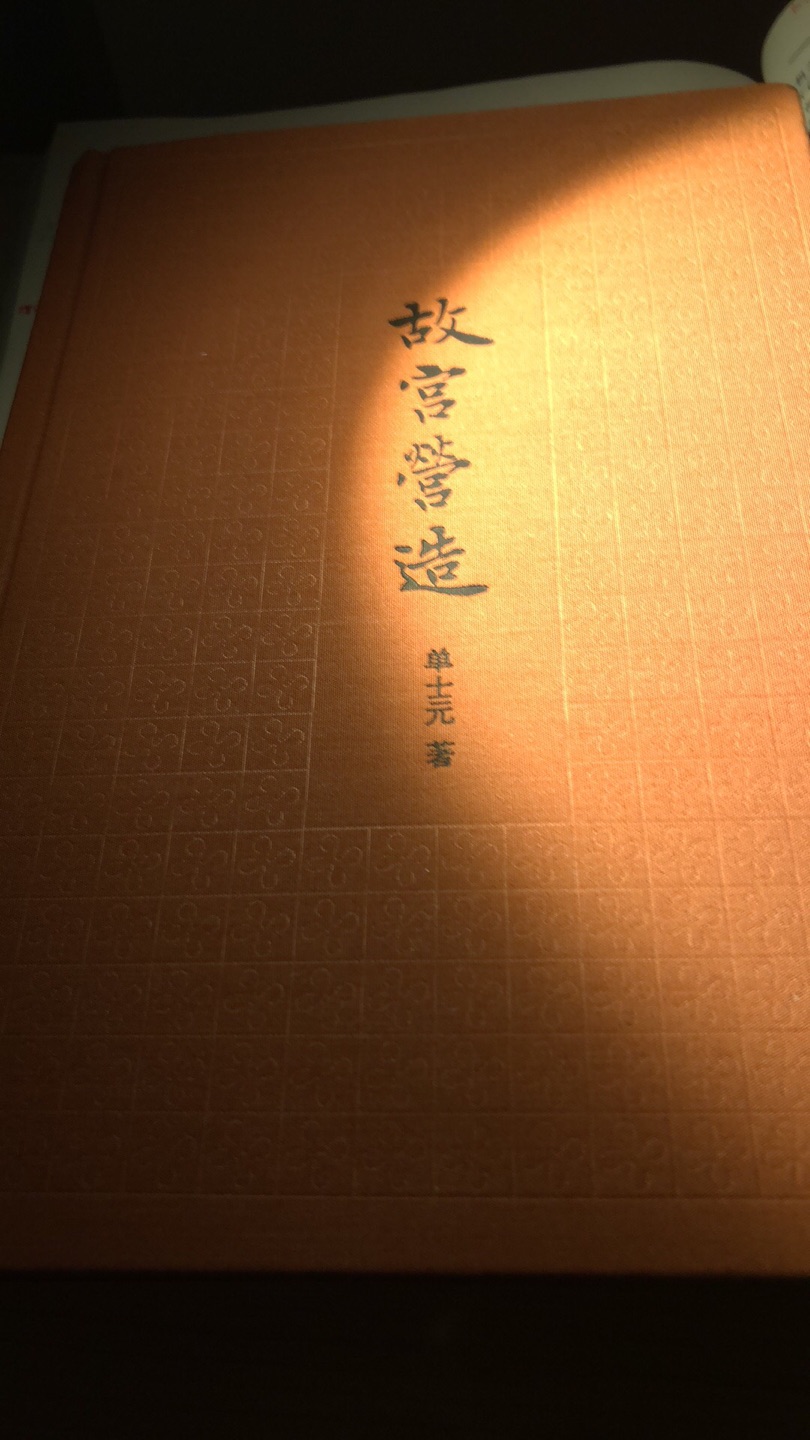 故宫營造
单士元 著